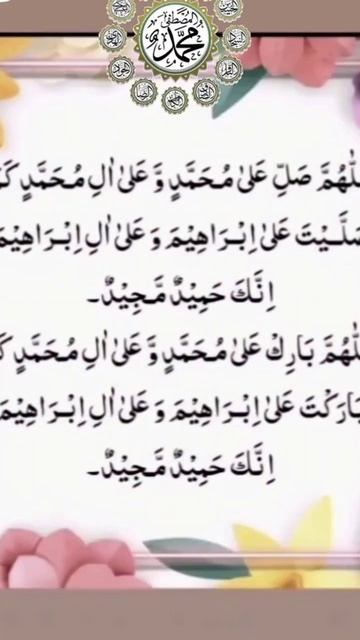 المصطفى
محمد
للّٰهُمَّ صَلِّ عَلٰى مُحَمَّدٍ وَّ عَلٰى اٰلِ مُحَمَّدٍ كَ
صَلَّيْتَ عَلٰى اِبْرَاهِيْمَ وَ عَلٰى اٰلِ اِبْرَاهِيْمَ
اِنَّكَ حَمِيْدٌ مَّجِيْدٌ۔
للّٰهُمَّ بَارِكْ عَلٰى مُحَمَّدٍ وَّ عَلٰى اٰلِ مُحَمَّدٍ كَ
بَارَكْتَ عَلٰى اِبْرَاهِيْمَ وَ عَلٰى اٰلِ اِبْرَاهِيْمَ
اِنَّكَ حَمِيْدٌ مَّجِيْدٌ۔